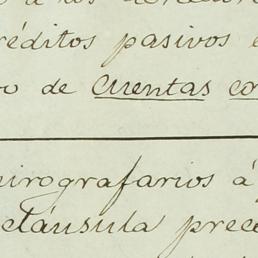 réditos pasivos
de cuentas co
irografarios á
cláusula prece